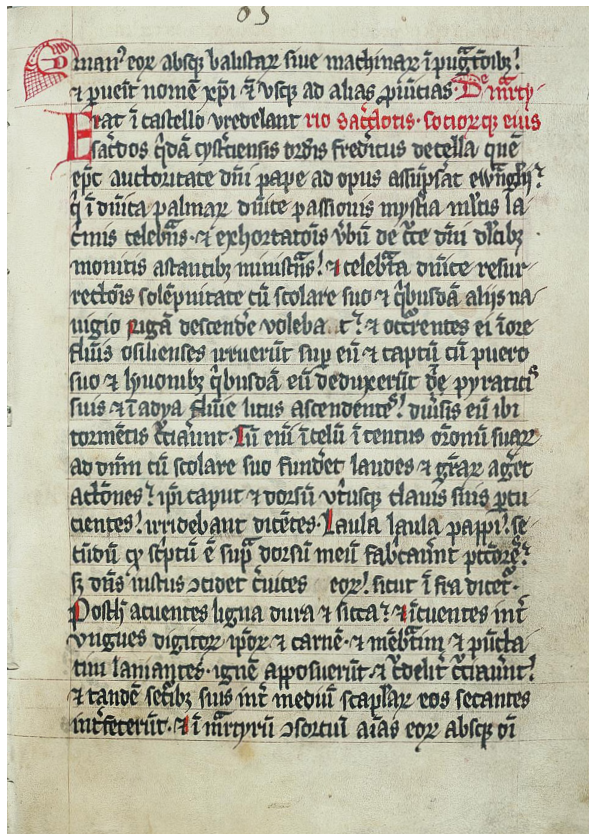 manꝰ eoꝝ absqꝫ balistaꝝ siue machinaꝝ ĩpug̃tõibꝫ!
⁊ ꝑueĩt nomẽ xp̃i ⁊ vsqꝫ ad alias ꝓuĩcias· De mr̃ty
Erat ĩ castello vredelant rio sac̃dotis· socioꝝqꝫ eius
sac̃dos q̃dã cysc̃iensis ord̃is fredicus de cella quẽ
ep̃c auctoritate dñi pape ad opus assũpsat ewãgl̃ij
q̃ ĩ dñica palmaꝝ dñice passionis myst̃ia ml̃tis la
c̃mis celebñs· ⁊ exhortatõis ṽbũ de c̃ce dñi dl̃cibꝫ
monitis astantibꝫ minist̃ns! ⁊ celeb̃ta dñice resur
rectõis solẽpnitate cũ scolare suo ⁊ q̃busdã alijs na
uigio rigã descende voleba t! ⁊ occr̃entes ei ĩ ore
flũis osilienses irruerũt suꝑ eũ ⁊ captũ cũ puero
suo ⁊ lyuonibꝫ q̃busdã eũ deduxerũt ĩ pyraticis
suis ⁊ ĩ adya flũie litus ascendentes! dũsis eũ ibi
tormẽtis c̃cia̾unt· Cũ em̃ ĩ celũ ĩtentus or̃onũ suaꝝ
ad dñm cũ scolare suo fundet laudes ⁊ gr̃aꝝ aget
actõnes! ip̃i caput ⁊ dorsũ vt̾usqꝫ clauis suis ꝑcu
cientes! irridebant dicẽtes· Laula laula pappi! se
cũdũ qꝫ sc̾ptũ ẽ sup̃ dorsũ meũ fab̾caũnt pctõres!
sꝫ dñs iustus ↄcidet c̃uices eoꝝ! sicut ĩfra dicet·
Posth̾ acuentes ligna dura ⁊ sicca! ⁊ ĩcuentes int̾
vngues digitoꝝ ip̃oꝝ ⁊ carnẽ· ⁊ mẽb̾tim ⁊ pũcta
tim laniantes· ignẽ apposuerũt ⁊ c̾deliť c̃cia̾unt!
⁊ tandẽ securibꝫ suis int̾ mediũ scaplãr eos secantes
int̾fecerũt· ⁊ ĩ mr̃tyrũ ↄsortiũ aĩas eoꝝ absqꝫ oĩ